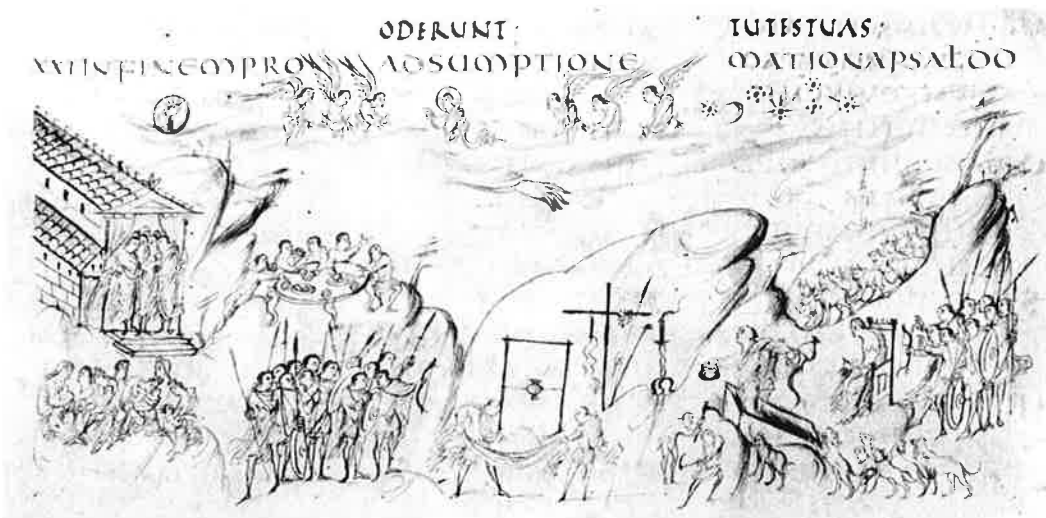 ODERUNT· TUTESTUAS·
XXI INFINEM PRO ADSUMPTIONE MATIONAPSALDO